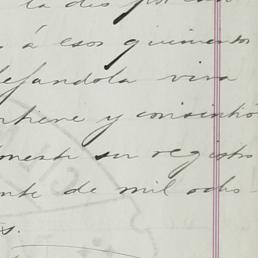 la dis por con
s á esos quinientos
dejandola viva
ntiene y consintió
onesta su registro
ente de mil ocho-
s.